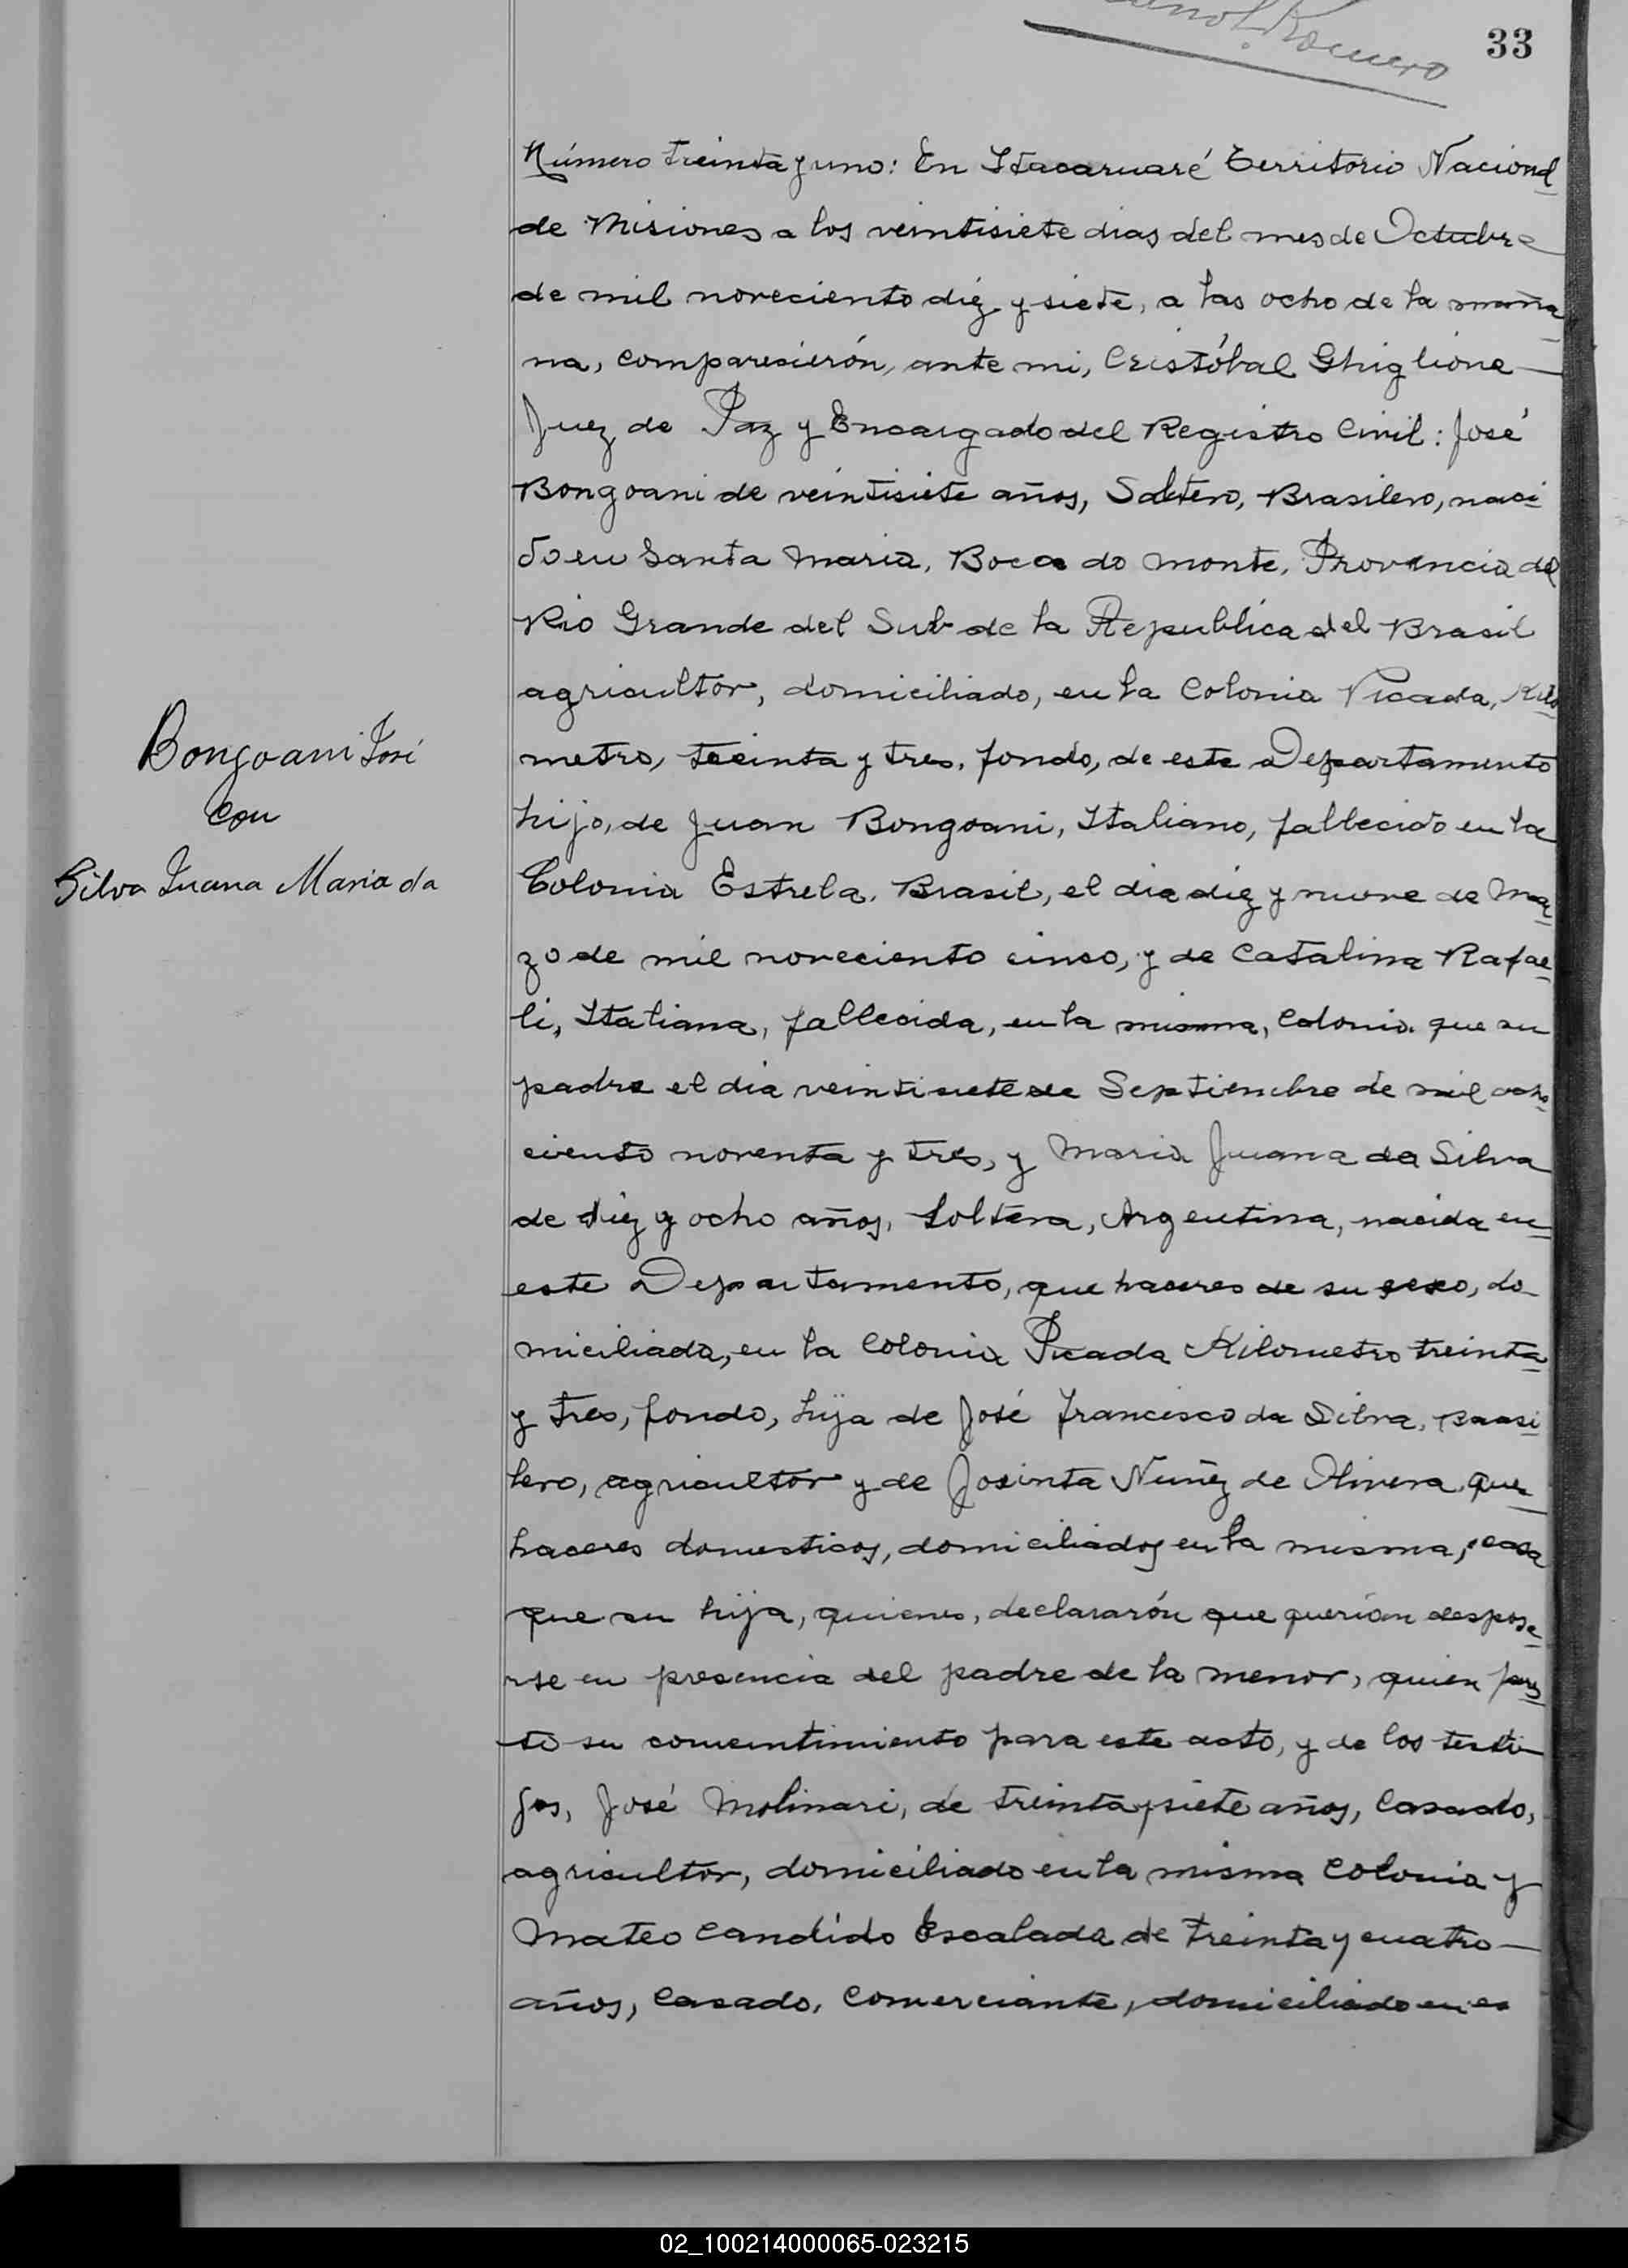 Romero
33
Número treinta y uno: En Itacaruaré Territorio Nacional
de Misiones a los veintisiete dias del mes de Octubre
de mil noveciento diez y siete, a las ocho de la maña
na, comparesierón, ante mi, Cristóbal Ghiglione
Juez de Paz y Encargado del Registro Civil: José
Bongoani de veintisiete años, Soltero, Brasilero, naci
do en Santa Maria, Boca do Monte, Provincia del
Rio Grande del Sub de la Republica del Brasil
agricultor, domiciliado, en la Colonia Picada, Kilo
metro, treinta y tres, fondo, de este Departamento
hijo, de Juan Bongoani, Italiano, fallecido en la
Bongoani José
con
Silva Juana Maria da
Colonia Estrela, Brasil, el dia diez y nueve de Mar
zo de mil noveciento cinco, y de Catalina Rafae
li, Italiana, fallecida, en la misma, Colonia que su
padre el dia veintisiete de Septiembre de mil ocho
ciento noventa y tres, y Maria Juana da Silva
de diez y ocho años, Soltera, Argentina, nacida en
este Departamento, que haceres de su sexo, do
miciliada, en la Colonia Picada Kilometro treinta
y tres, fondo, hija de José Francisco da Silva, Brasi
lero, agricultor y de Josinta Nuñez de Olivera, que
haceres domesticos, domiciliados en la misma, casa
que su hija, quienes, declararón que querían desposa
rse en presencia del padre de la menor, quien pres
to su consentimiento para este acto, y de los testi
gos, José Molinari, de treinta y siete años, Casado,
agricultor, domiciliado en la misma Colonia y
Mateo Candido Escalada de treinta y cuatro
años, Casado, Comerciante, domiciliado en es
02_100214000065-023215